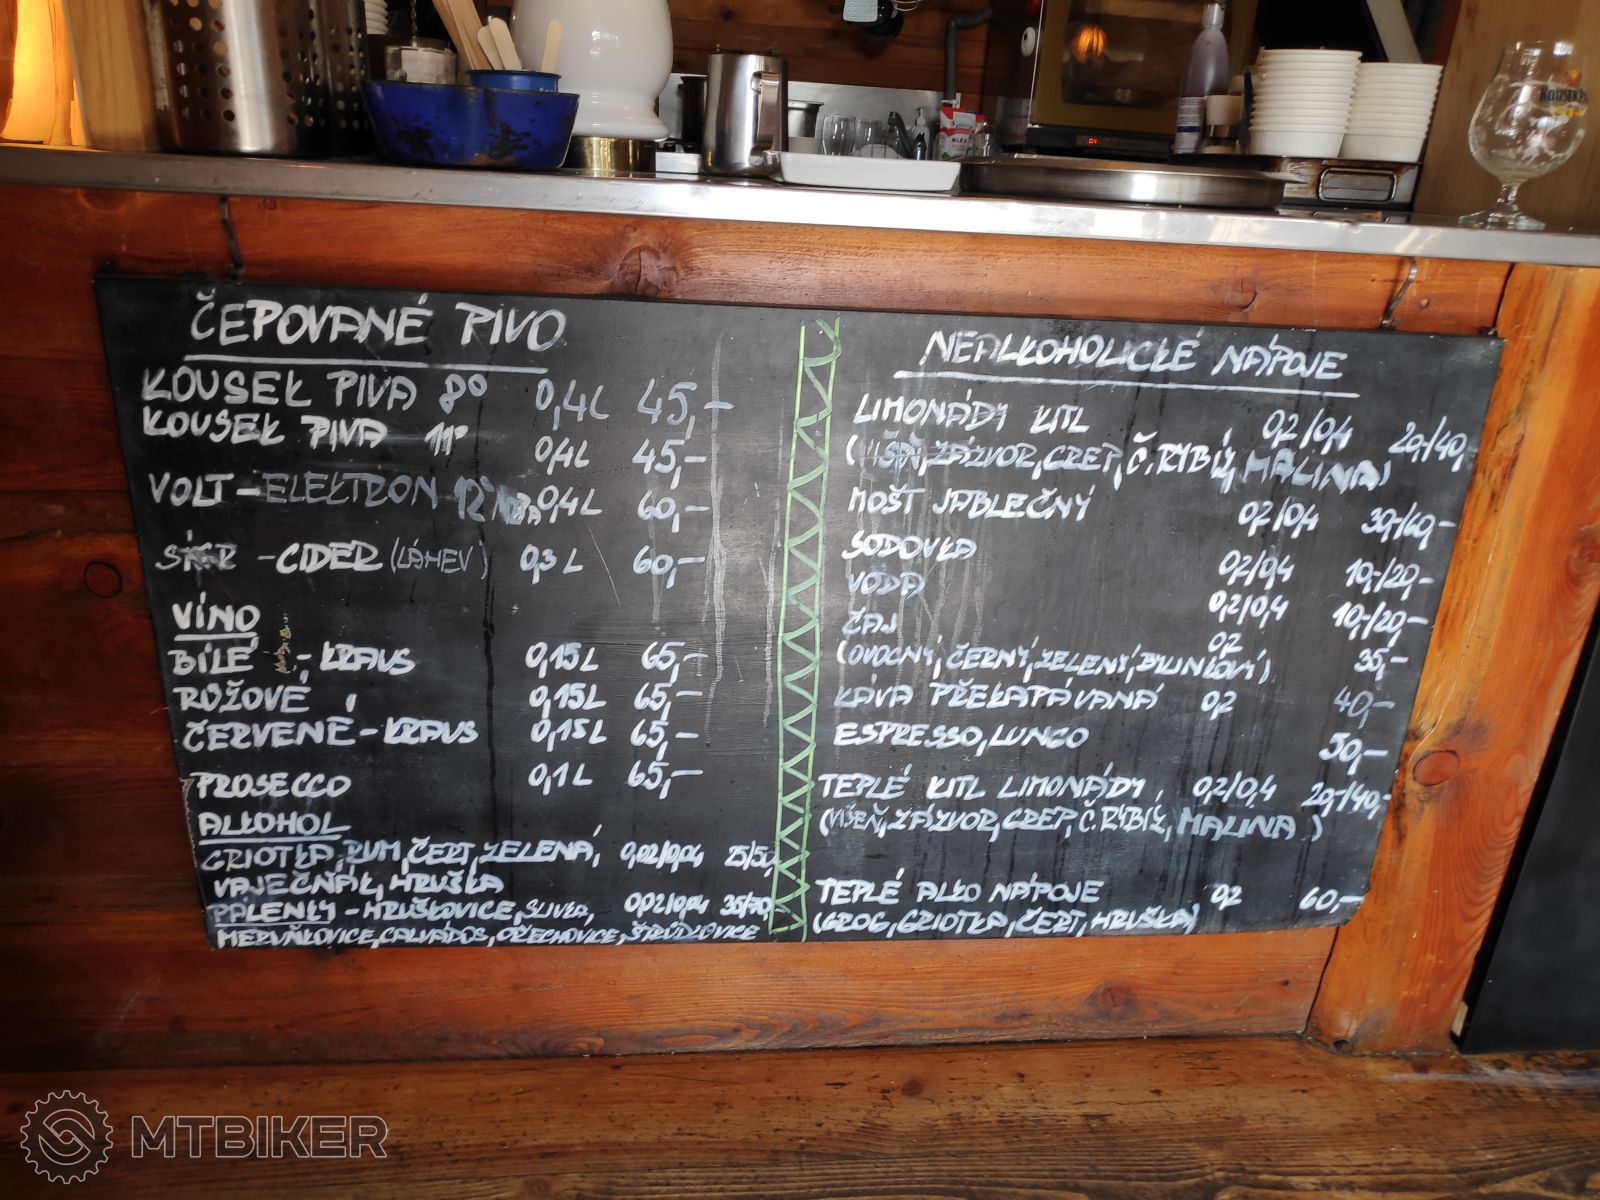 ČEPOVANÉ PIVO
KOUSEK PIVA 8° 0,4L 45,-
KOUSEK PIVA 11° 0,4L 45,-
VOLT - ELEKTRON 12° 0,4L 60,-
- CIDER (LÁHEV) 0,3L 60,-
VÍNO
BÍLÉ - KRAUS 0,15L 65,-
RŮŽOVÉ 0,15L 65,-
ČERVENÉ - KRAUS 0,15L 65,-
PROSECCO 0,1L 65,-
ALKOHOL
GRIOTKA, RUM, ČERT, ZELENÁ, 0,02/0,04 25/50,-
VAJEČŇÁK, HRUŠKA
PÁLENKY - HRUŠKOVICE, SLIVKA, 0,02/0,04 35/70,-
MERUŇKOVICE, CALVADOS, OŘECHOVICE, ŠTRÚDLOVICE
NEALKOHOLICKÉ NÁPOJE
LIMONÁDY KITL 0,2/0,4 20,-/40,-
(VIŠEŇ, ZÁZVOR, GREP, Č. RYBÍZ, MALINA)
MOŠT JABLEČNÝ 0,2/0,4 30,-/60,-
SODOVKA 0,2/0,4 10,-/20,-
VODA 0,2/0,4 10,-/20,-
ČAJ 0,2 35,-
(OVOCNÝ, ČERNÝ, ZELENÝ, BYLINKOVÝ)
KÁVA PŘEKAPÁVANÁ 0,2 40,-
ESPRESSO, LUNGO 50,-
TEPLÉ KITL LIMONÁDY, 0,2/0,4 20,-/40,-
(VIŠEŇ, ZÁZVOR, GREP, Č. RYBÍZ, MALINA)
TEPLÉ ALKO NÁPOJE 0,2 60,-
(GROG, GRIOTKA, ČERT, HRUŠKA)
MTBIKER